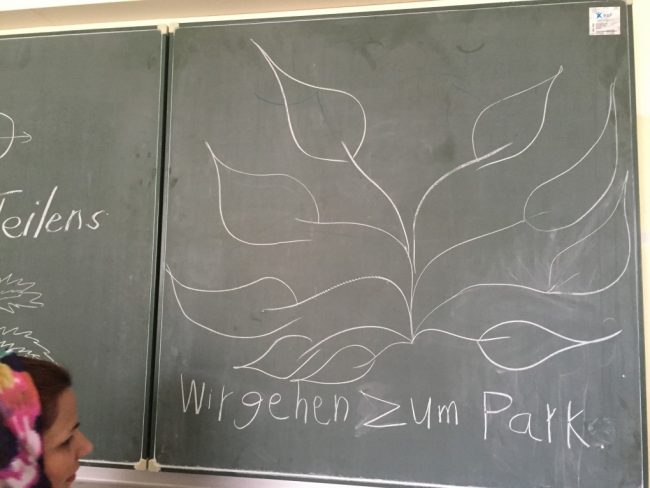 Teilens
Wir gehen zum Park.